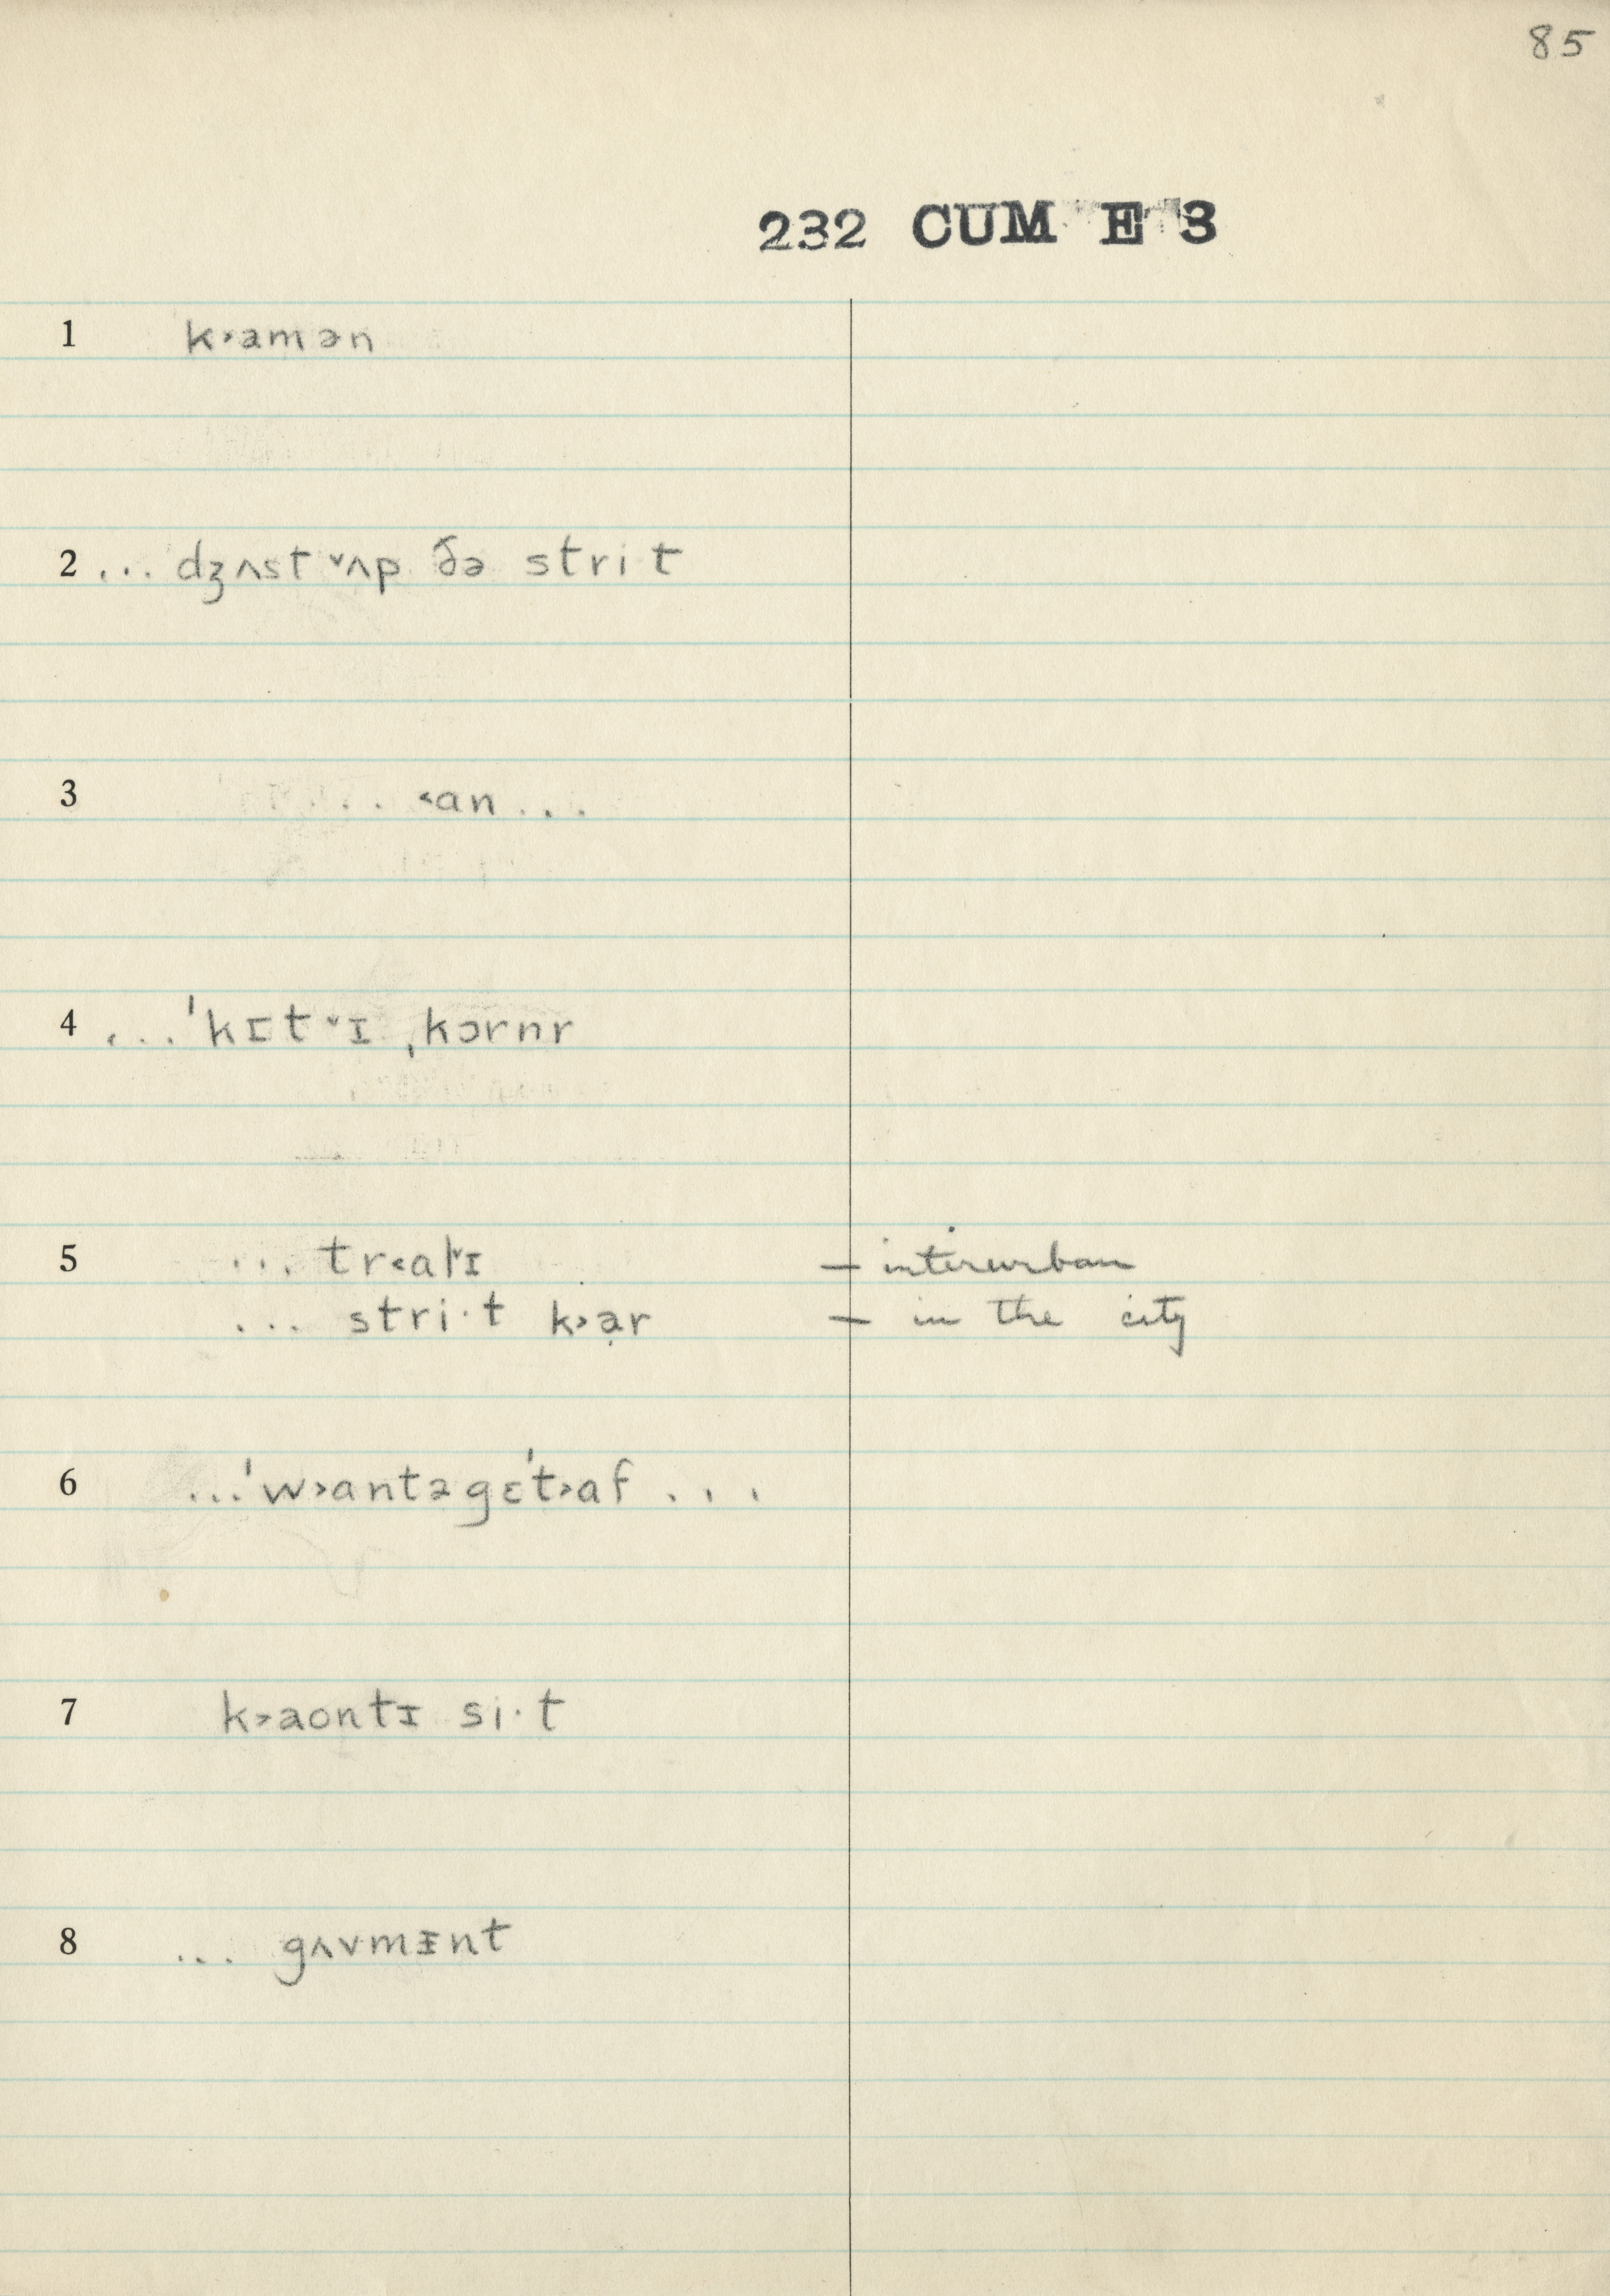 85
232 CUM E 3
1 k˃amən
2 ... dʒʌst ˅ʌp ðə strit
3 ... ˂an ...
4 ... ˈkɪt˅ɪ ˌkɔrnr
5 ... tr˂al˅ɪ — interurban
... stri·t k˃ạr — in the city
6 ... ˈw˃antəgɛˈt˃af ...
7 k˃aontɪ si·t
8 ... gʌvmᵻnt